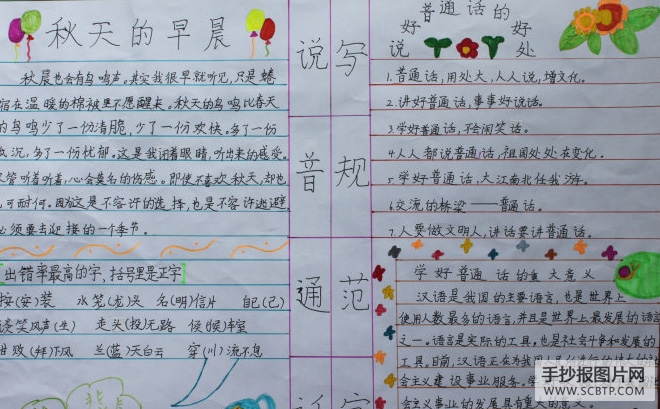 秋天的早晨
秋晨也会有鸟鸣声。其实我很早就听见,只是蜷
宿在温暖的棉被里不愿醒来。秋天的鸟鸣比春天
的鸟鸣少了一份清脆,少了一份欢快。多了一份
沉,多了一份忧郁。这是我闭着眼睛,听出来的感受。
管听着听着,心会莫名的伤感。即使不喜欢秋天,却也
可耐何。因为这是不容许的选择,也是不容许逃避
必须要去迎接的一个季节。
出错率最高的字,括号里是正字
按(安)装 水笼(龙)头 名(明)信片 自己(己)
谈笑风声(生) 走头(投)无路 侯(候)车室
甘败(拜)下风 兰(蓝)天白云 穿(川)流不息
说写
普规
通范
话字
普通话的
好 好
说 处
1.普通话,用处大,人人说,增文化。
2.讲好普通话,事事好说话。
3.学好普通话,不会闹笑话。
4.人人都说普通话,祖国处处在变化。
5.学好普通话,大江南北任我游。
6.交流的桥梁——普通话。
7.人要做文明人,讲话要讲普通话。
学好普通话的重大意义
汉语是我国的主要语言,也是世界上
使用人数最多的语言,并且是世界上最发展的语言
之一。语言是实际的工具,也是社会斗争和发展的
工具。目前,汉语正在为我国人
会主义建设事业服务。学
会主义事业的发展具有重大的意义。
手抄报图片网
WWW.SCBTP.COM